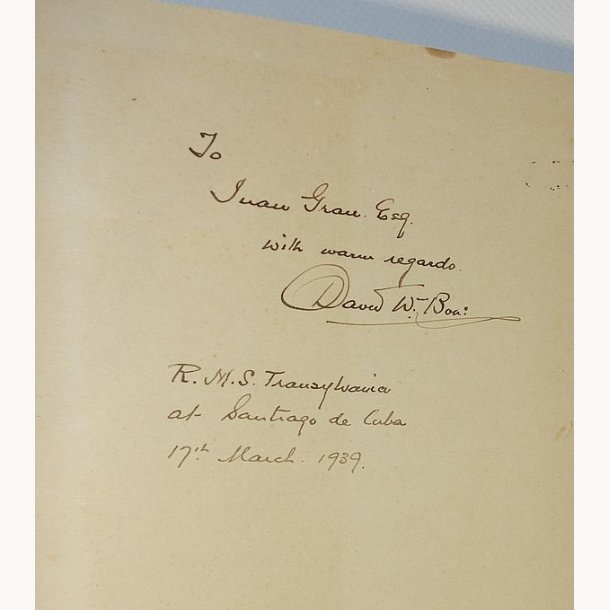 To
Juan Grau Esq.
with warm regards.
David W. Bone
R.M.S. Transylvania
at Santiago de Cuba
17th March. 1939.